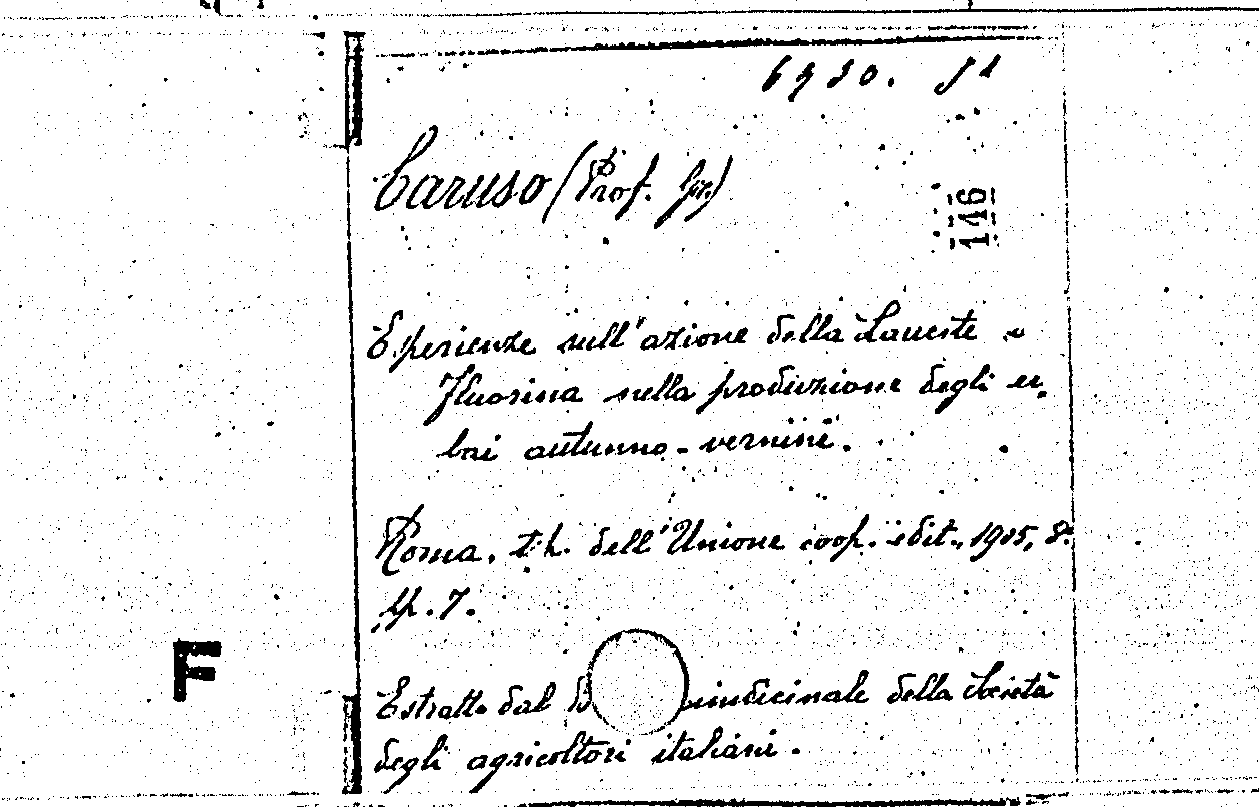 6930. 51
Caruso (Prof. Gir.)
146
Esperienze sull'azione della Laueste e
Fluorina nella produzione degli er-
bai autunno-vernini.
Roma. tip. dell'Unione coop. edit., 1905, 8°
pp. 7.
F
Estratto dal B uindicinale della Società
degli agricoltori italiani.